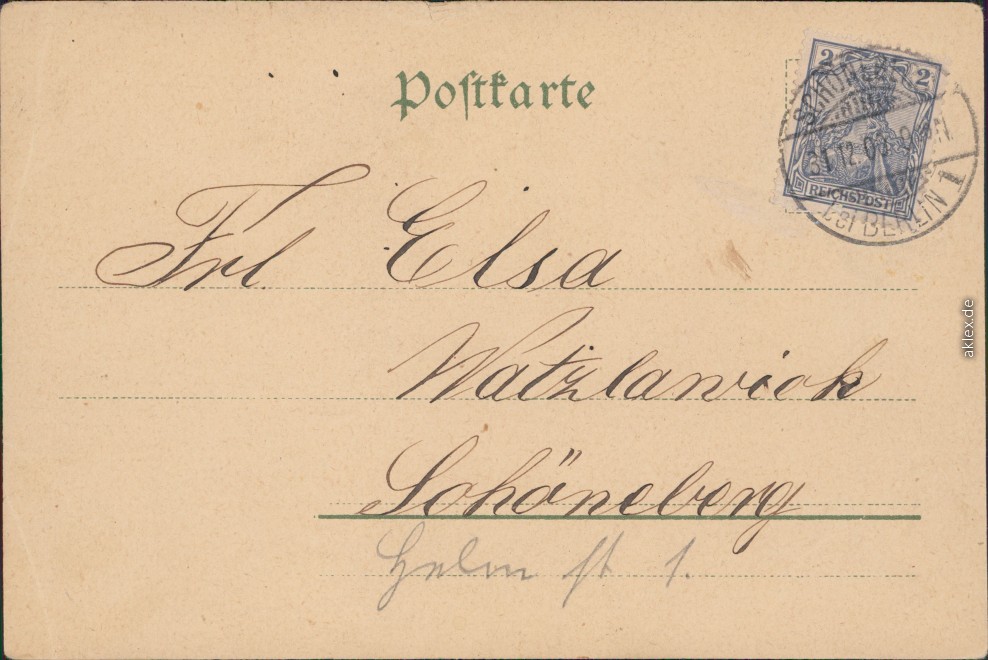 Postkarte
2 2
REICHSPOST
SCHÖNEBERG
31.12.00
bei BERLIN 1
Frl Elsa
Watzlawick
Schöneberg
Helm st 1.
aklex.de